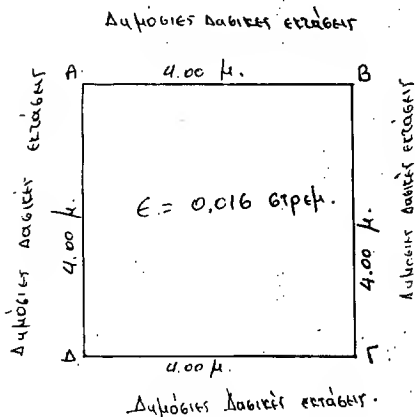 Δημόσιες Δασικές εκτάσεις
Α 4.00 μ. Β
Δημόσιες Δασικές εκτάσεις
4.00 μ.
Ε = 0,016 στρεμ.
4.00 μ.
Δημόσιες Δασικές εκτάσεις
Δ 4.00 μ. Γ
Δημόσιες Δασικές εκτάσεις.